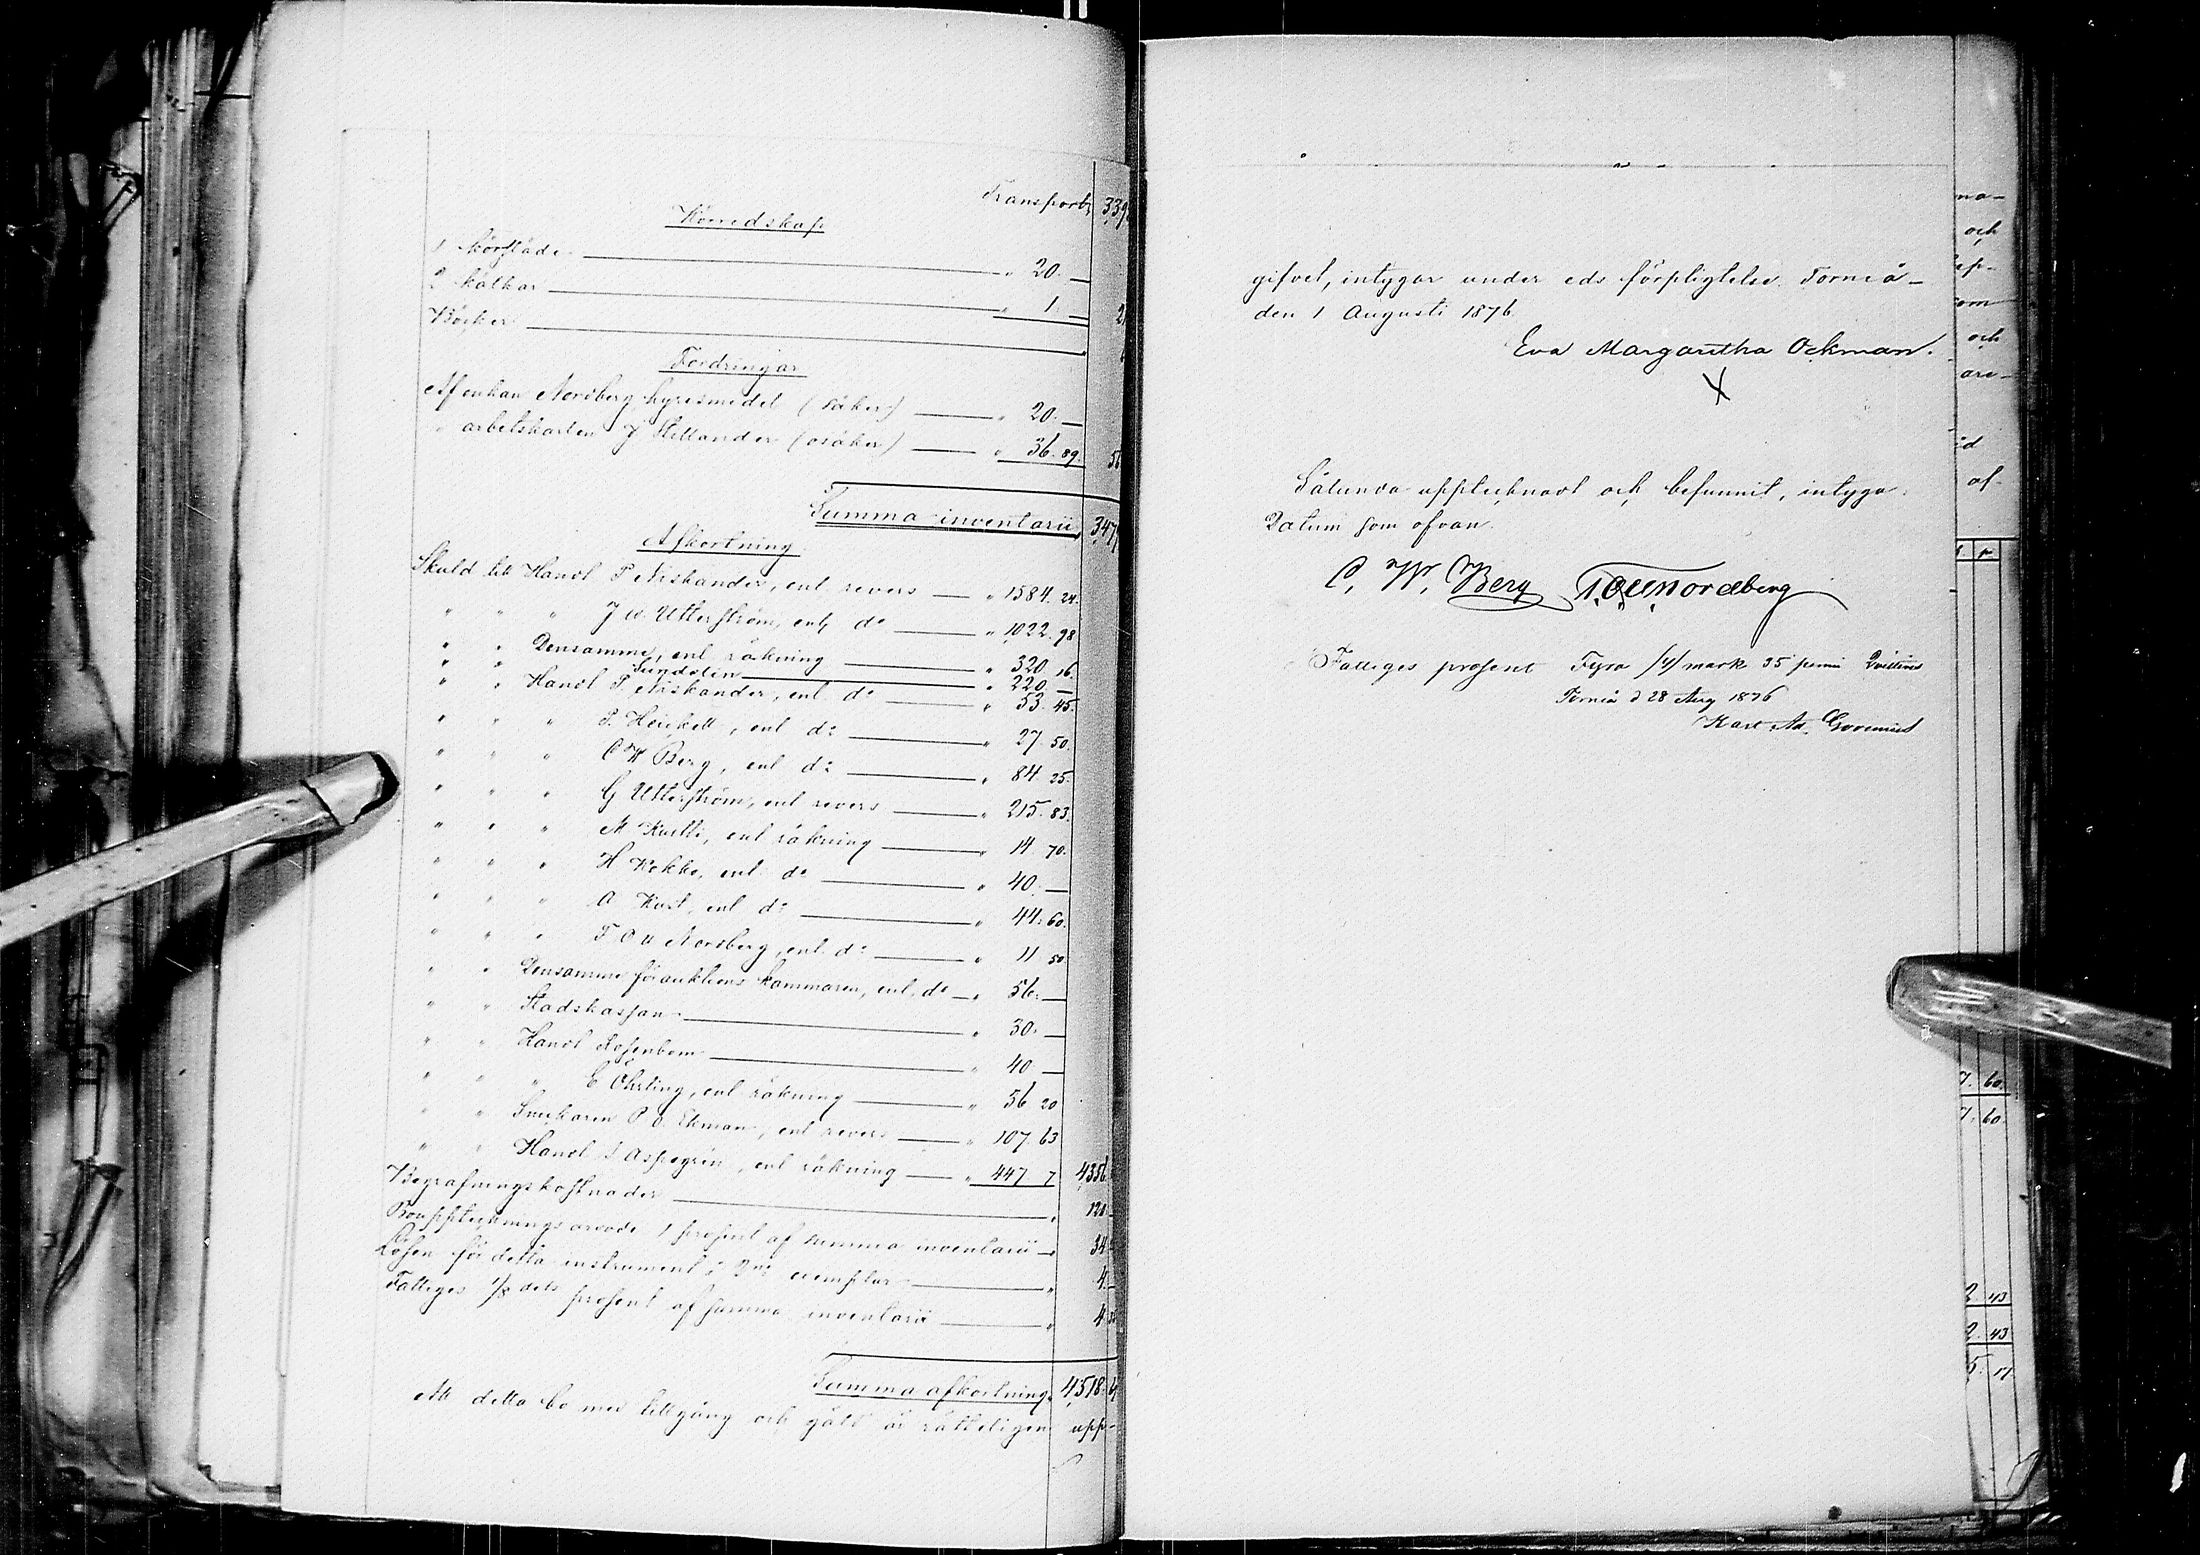 Transport, 339
Körredskap
1 körsläde " 20. —
2 kälkar " 1. — 2
Böcker "
Fordringar
Af enkan Nordberg, hyresmedel (säker) " 20. —
" arbetskarlen J Stillander (osäker) " 36. 89. 56
Summa inventarii 347
Afkortning
Skuld till Handl P Niskander, enl. revers " 1584. 24.
" " " J W. Utterström, enl, d:o " 1022. 98
" " Densamme, enl räkning " 320 16.
" " Sundelin " 220 —
" " Handl P. Niskander, enl d:o " 53. 45.
" " " P. Heickell, enl d:o " 27. 50.
" " " C W Berg, enl d:o " 84. 25.
" " " G Utterström, enl revers " 215. 83.
" " " M Kurtti, enl räkning " 14 70.
" " " H Kokko, enl d:o " 40. —
" " " A Kurt, enl d:o " 44. 60.
" " " F O U Nordberg, enl. d:o " 11 50
" " Densamme för auktions kammaren, enl. d:o " 56. —
" " Stadskassan " 30. —
" " Handl Rosenbom " 40. —
" " " E Öhrling, enl räkning " 56 20
" " Snickaren P O. Ekman, enl revers " 107. 63
" " Handl S Aspegrén, enl räkning " 447 7 4356.
Begrafningskostnader " 120 —
Bouppteckningsarvode 1 prosent af summa inventarii " 34
Lösen för detta instrument i 2ne exemplar " 4. —
Fattiges 1/8 dels prosent af summa inventarii " 4
Summa afkortning, 4518.
Att detta bo med tillgång och gäld är rätteligen upp-
gifvet, intygar under eds förpligtelse. Torneå
den 1 Augusti 1876.
Eva Margaretha Ockman.
X
Sålunda upptecknadt och befunnit, intyga.
Datum som ofvan.
C. W. Berg F.O.U. Nordberg
Fattiges prosent Fyra /4/ mark 35 penni
Torneå d 28 Aug 1876
Karl Ad.
ma-
och
up-
om
och
are-
id
af
p
7. 60.
7. 60.
2. 43
2. 43
5. 17